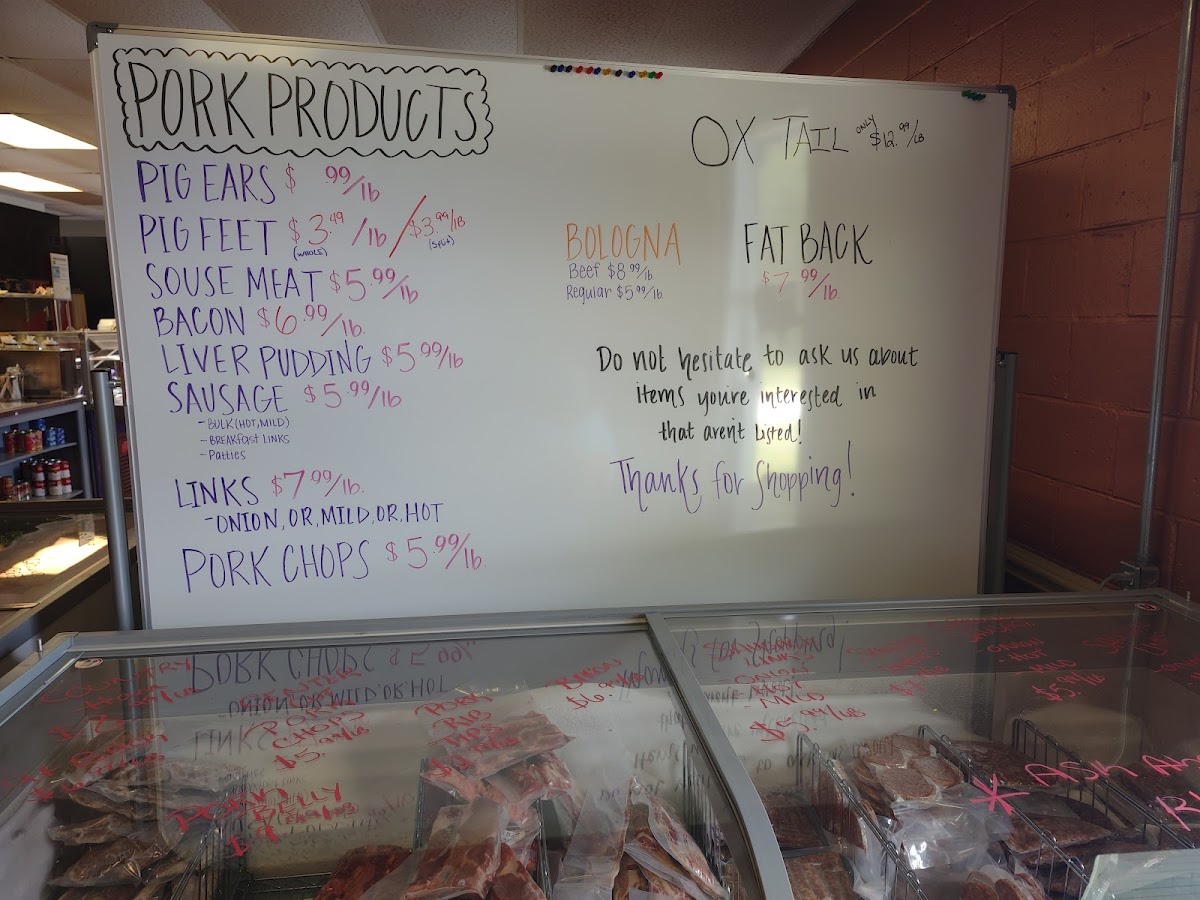 PORK PRODUCTS
PIG EARS $ .99/lb
PIG FEET $3.49/lb / $3.99/lb
(WHOLE) (Split)
SOUSE MEAT $5.99/lb
BACON $6.99/lb.
LIVER PUDDING $5.99/lb
SAUSAGE $5.99/lb
- BULK (HOT, MILD)
- BREAKFAST LINKS
- Patties
LINKS $7.99/lb.
- ONION, OR, MILD, OR, HOT
PORK CHOPS $5.99/lb.
OX TAIL ONLY $12.99/LB
BOLOGNA
Beef $8.99/lb
Regular $5.99/lb.
FAT BACK
$7.99/lb.
Do not hesitate to ask us about
items you're interested in
that aren't listed!
Thanks for Shopping!
COUNTRY
CENTER
PORK
CHOPS
PORK
RIB
BACON
LINKS
ONION
MILD
$5.99/LB
ONION
HOT
MILD
$5.99/LB
* ASK